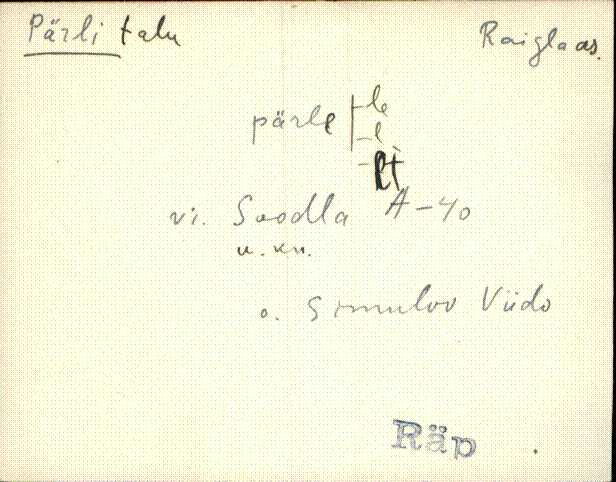 Pärli talu
Raiglaas.
pärle | -le
-l
-lt
vi. Soodla A-40
u. kn.
o. Simulov Viido
Räp